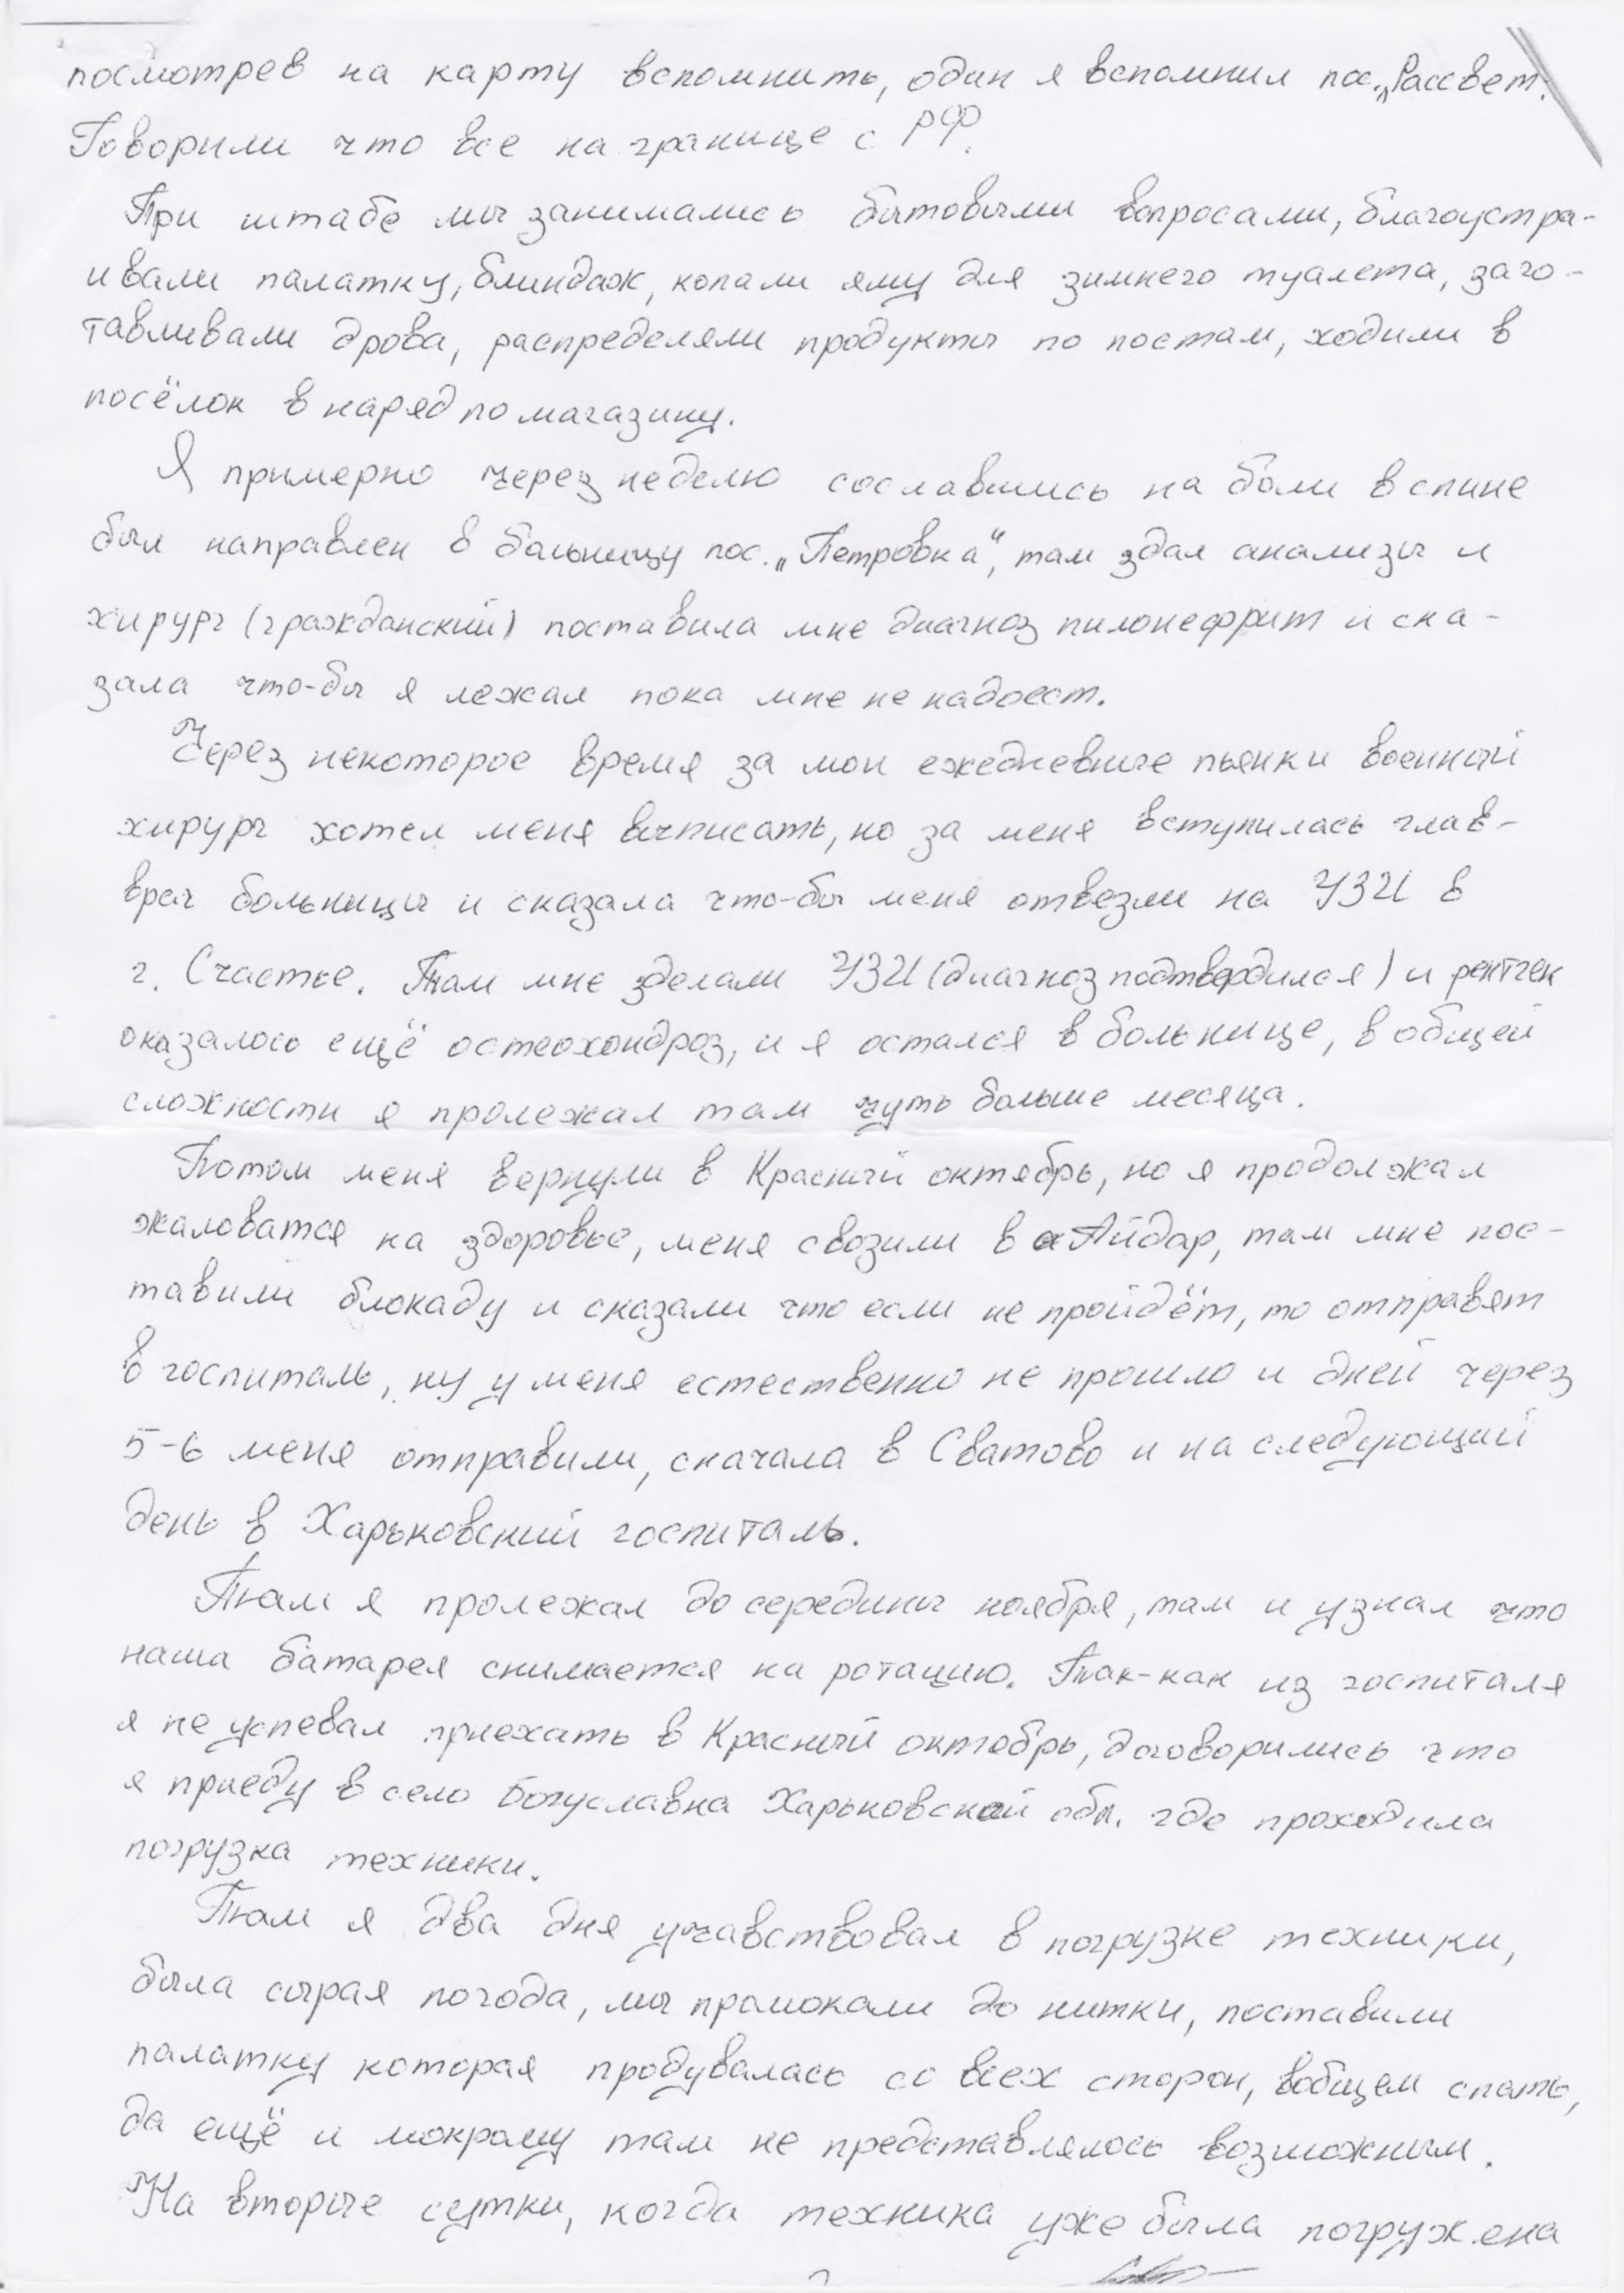 посмотрев на карту вспомнить, один я вспомнил пос. „Рассвет.
Говорили что все на границе с РФ.
При штабе мы занимались бытовыми вопросами, благоустра-
ивали палатку, блиндаж, копали яму для зимнего туалета, заго-
тавливали дрова, распределяли продукты по постам, ходили в
посёлок в наряд по магазину.
Я примерно через неделю сославшись на боли в спине
был направлен в больницу пос. „Петровка“, там здал анализы и
хирург (гражданский) поставила мне диагноз пилонефрит и ска-
зала что-бы я лежал пока мне не надоест.
Через некоторое время за мои ежедневные пьянки военный
хирург хотел меня выписать, но за меня вступилась глав-
врач больницы и сказала что-бы меня отвезли на УЗИ в
г. Счастье. Там мне зделали УЗИ (диагноз подтвердился) и рентген
оказалось ещё остеохондроз, и я остался в больнице, в общей
сложности я пролежал там чуть больше месяца.
Потом меня вернули в Красный октябрь, но я продолжал
жаловатся на здоровье, меня свозили в Айдар, там мне пос-
тавили блокаду и сказали что если не пройдёт, то отправят
в госпиталь, ну у меня естественно не прошло и дней через
5-6 меня отправили, сначала в Сватово и на следующий
день в Харьковский госпиталь.
Там я пролежал до середины ноября, там и узнал что
наша батарея снимается на ротацию. Так-как из госпиталя
я не успевал приехать в Красный октябрь, договорились что
я приеду в село Богуславка Харьковской обл. где проходила
погрузка техники.
Там я два дня учавствовал в погрузке техники,
была сырая погода, мы промокали до нитки, поставили
палатку которая продувалась со всех сторон, вобщем спать,
да ещё и мокрому там не представлялось возможным.
На вторые сутки, когда техника уже была погружена